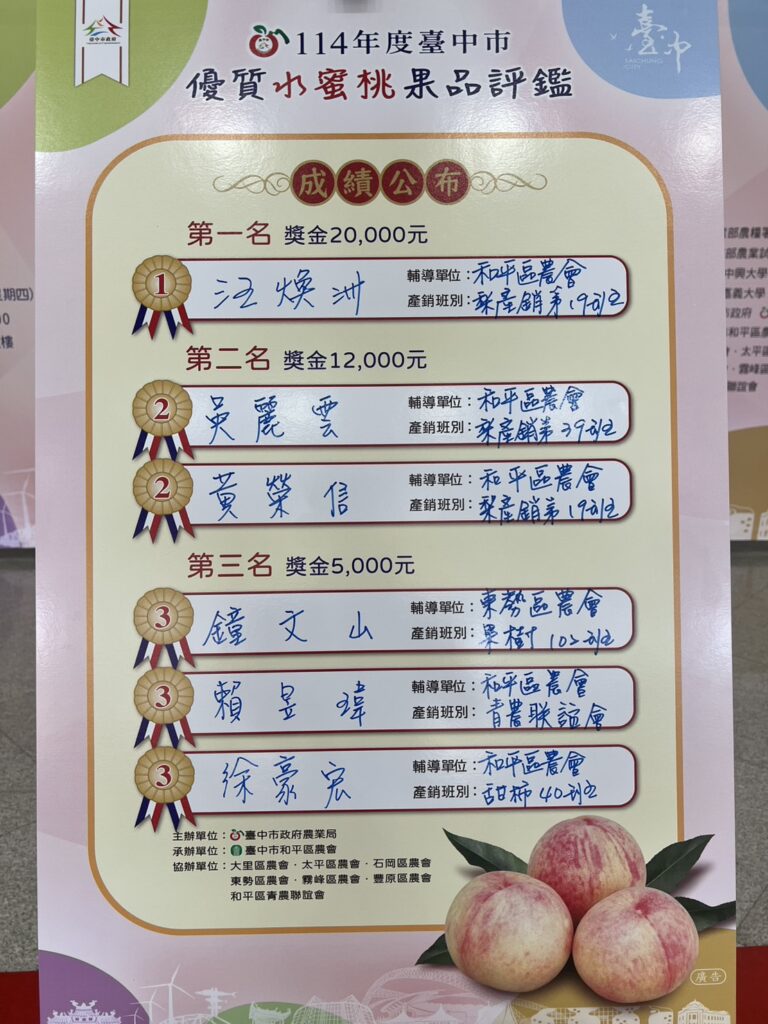 臺中市政府
臺中
TAICHUNG CITY
114年度臺中市
優質水蜜桃果品評鑑
成績公布
第一名 獎金20,000元
1 汪煥洲
輔導單位：和平區農會
產銷班別：梨產銷第19班
第二名 獎金12,000元
2 吳麗雲
輔導單位：和平區農會
產銷班別：梨產銷第39班
2 黃榮信
輔導單位：和平區農會
產銷班別：梨產銷第19班
第三名 獎金5,000元
3 鐘文山
輔導單位：東勢區農會
產銷班別：果樹102班
3 賴昱瑋
輔導單位：和平區農會
產銷班別：青農联誼會
3 徐豪宏
輔導單位：和平區農會
產銷班別：甜柿40班
主辦單位：臺中市政府農業局
承辦單位：臺中市和平區農會
協辦單位：大里區農會・太平區農會・石岡區農會
東勢區農會・霧峰區農會・豐原區農會
和平區青農聯誼會
廣告